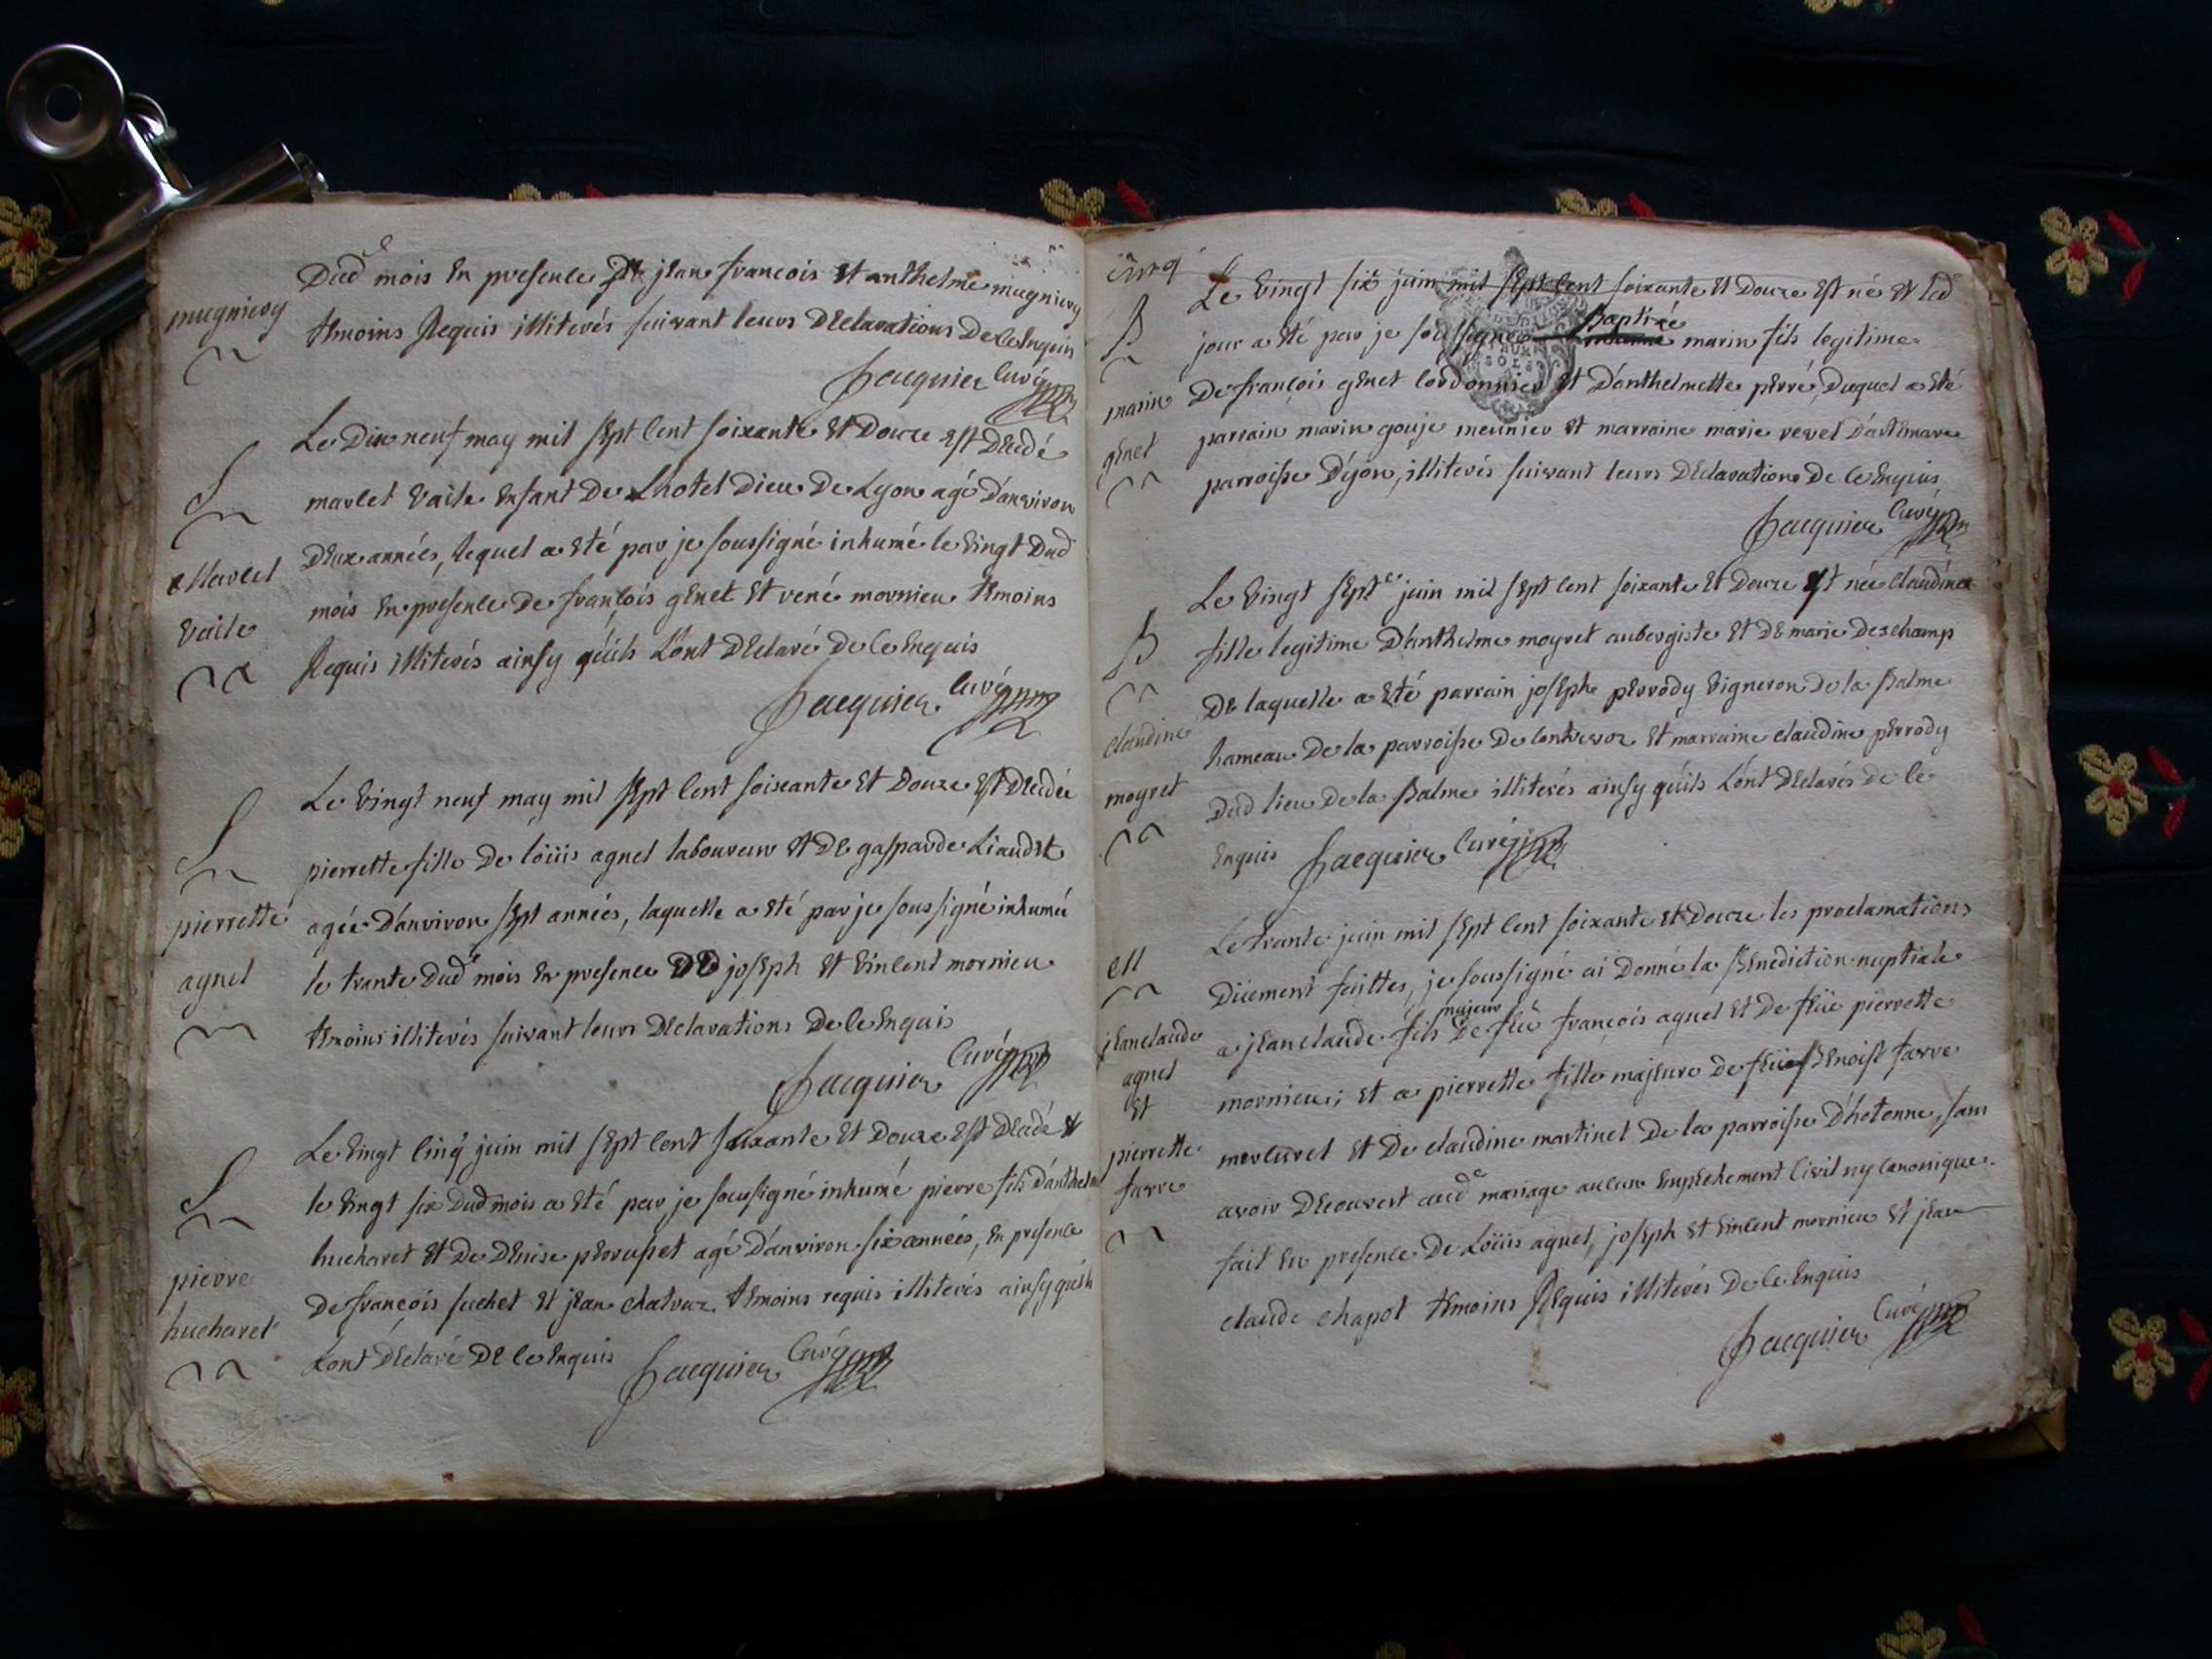 mugniery
Dud.e mois En presence De jEan francois Et anthelme mugniery
tEmoins Requis illiterés suivant leurs DEclarations De ce Enquis
Jacquier Curé
S
Marlet
Vaile
Le Dix neuf may mil sEpt Cent soixante Et Douze Est DEcedé
marlet Vaile Enfant De Lhotel Dieu De Lyon agé D'anviron
DEux années, lequel a Eté par je soussigné inhumé le Vingt Dud
mois En presence De francois gEnet Et rené mornieu tEmoins
Requis illiterés ainsy qu'ils L'ont DEclaré De ce Enquis
Jacquier Curé
S
pierrette
agnel
Le Vingt neuf may mil sEpt Cent soixante Et Douze Est DEcedée
pierrette fille De loüis agnel laboureur Et DE gasparde Liaudet
agée D'anviron sEpt années, laquelle a Eté par je soussigné inhumée
le trante Dud.e mois En presence DE josEph Et Vincent mornieu
tEmoins illiterés suivant leurs DEclarations De ce Enquis
Jacquier Curé
S
pierre
hucharet
Le Vingt Cinq juin mil sEpt Cent soixante Et Douze Est DEcedé &
le Vingt six Dud mois a Eté par je soussigné inhumé pierre fils D'anthelme
hucharet Et De DEnise pErrusset agé D'anviron six années, En presence
De francois suchet Et jEan chatroux tEmoins requis illiterés ainsy qu'ils
L'ont DEclaré DE ce Enquis Jacquier Curé
B
marin
gEnet
Le Vingt six juin mil sEpt Cent soixante Et Douze Est né Et Led
jour a Eté par je soussigné Baptizé marin fils legitime
De francois gEnet Cordonnier Et D'anthelmette pErré, Duquel a Eté
parrain marin gouje meunier Et marraine marie revel D'artemare
parroisse D'yon, illiterés suivant leurs DEclarations De ce Enquis
Jacquier Curé
B
claudine
moyret
Le Vingt sEpt juin mil sEpt Cent soixante Et Douze Est née claudine
fille legitime D'anthelme moyret aubergiste Et DE marie Deschamp
DE laquelle a Eté parrain josEph pErrody Vigneron De la Balme
hameau De la parroisse De Contrevoz Et marraine claudine pErrody
Dud lieu De la Balme illiterés ainsy qu'ils L'ont DEclarés De ce
Enquis Jacquier Curé
M
jEan claude
agnel
Et
pierrette
farre
Le trante juin mil sEpt Cent soixante Et Douze les proclamations
Düement faittes, je soussigné ai Donné la BEnediction nuptiale
a jEan claude fils majeur De feu francois agnel Et De feüe pierrette
mornieu; Et a pierrette fille majeure De feu BEnoist farre
Et De claudine martinet De la parroisse D'hotonne, sans
avoir DEcouvert aud.e mariage aucun Empechement Civil ny Canonique.
fait En presence De Loüis agnel, josEph Et Vincent mornieu Et jEan
claude chapot tEmoins REquis illiterés De ce Enquis
Jacquier Curé